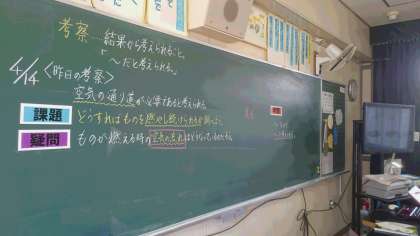 考察…結果から考えられること。
〜だと考えられる。
4/14 <昨日の考察>
空気の通り道が必要であると考えられる。
課題 どうすればものを燃やし続けられるか調べよう。
疑問 ものが燃える時の空気の流れはどうなっているのだろう。